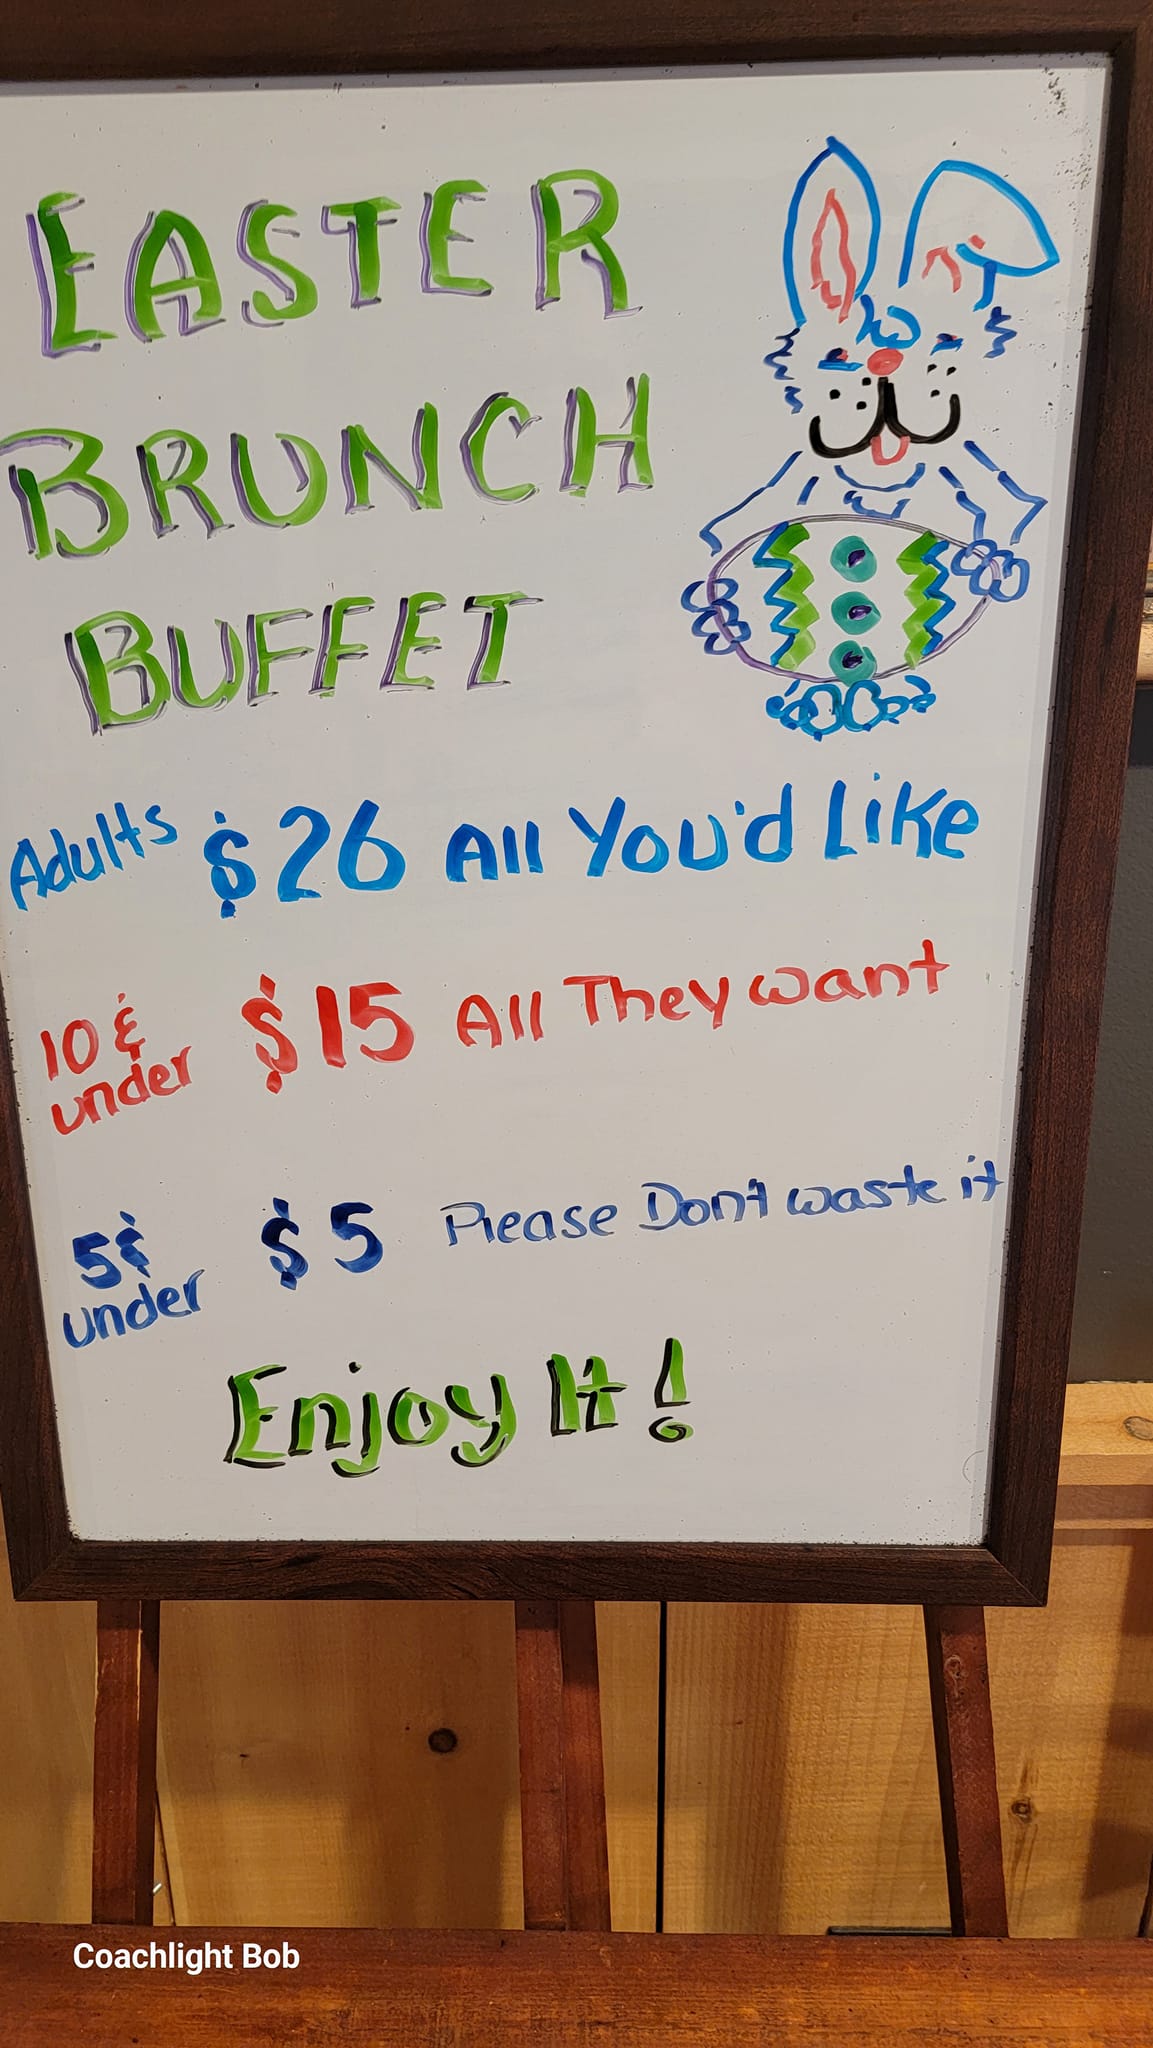 EASTER
BRUNCH
BUFFET
Adults $26 All You'd Like
10 & under $15 All They want
5 & under $5 Please Don't waste it
Enjoy It!
Coachlight Bob